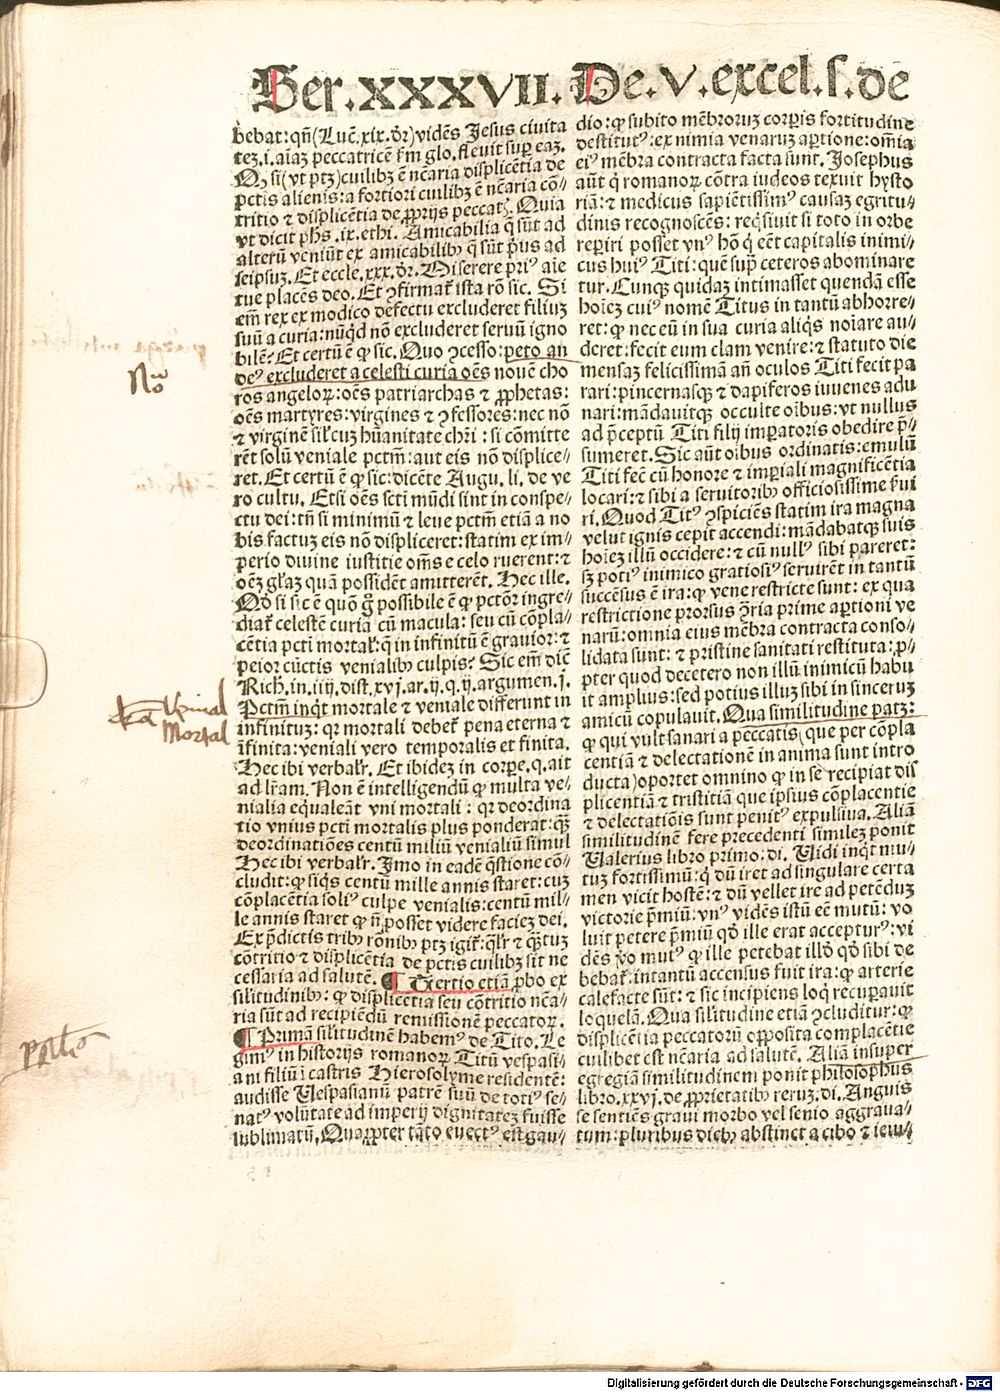 Ser.XXXVII. De.V.excel.ſ.de
bebat:qñ(Luc̄.xix.dr̄)vidēs Jeſus ciuita
teʒ.i.aiaʒ peccatricē ſm̄ glo.fleuit ſuꝑ eaʒ.
Qꝫ ſi(vt ptʒ)cuilibꝫ ē nc̄aria diſplicētia de
pctis alienis:a fortiori cuilibꝫ ē nc̄aria cō⸗
tritio ⁊ diſplicētia de ꝓprijs peccat̄. Quia
vt dicit ph̄s.ix.ethi. Amicabilia q̄ ſūt ad
alterū veniūt ex amicabilibꝰ q̄ ſūt pͥus ad
ſeipſuʒ. Et eccle.xxx.dr̄.Miſerere priꝰ aīe
tue placēs deo. Et ꝯfirmat̄ iſta rō ſic. Si
em̄ rex ex modico defectu excluderet filiuʒ
ſuū a curia:nūqd nō excluderet ſeruū igno
bilē? Et certū ē ꝙ ſic. Quo ꝯceſſo:peto an
deꝰ excluderet a celeſti curia oēs nouē cho
ros angeloꝝ:oēs patriarchas ⁊ ꝓphetas:
oēs martyres:virgines ⁊ ꝯfeſſores:nec nō
⁊ virginē ſil̄cuʒ hūanitate chr̄i : ſi cōmitte
rēt ſolū veniale pctm̄:aut eis nō diſplice⸗
ret. Et certū ē ꝙ ſic:dicēte Augu. li. de ve
ro cultu. Etſi oēs ſcti mūdi ſint in conſpe⸗
ctu dei:tn̄ ſi minimū ⁊ leue pctm̄ etiā a no
bis factuʒ eis nō diſpliceret:ſtatim ex im⸗
perio diuine iuſtitie om̄s e celo ruerent:⁊
oēʒ gl̄aʒ quā poſſidēt amitterēt. Hec ille.
Qd̓ ſi ſic ē quō g̊ poſſibile ē ꝙ pctōr ingre⸗
diat̄ celeſtē curiā cū macula: ſeu cū cōpla⸗
cētia pcti mortal̄:q̄ in infinitū ē grauior:⁊
peior cūctis venialibꝰ culpis? Sic em̄ dicē
Rich.in.iiij.diſt.xvj.ar.ij.q.ij.argumen.j.
Pctm̄ inqͥt mortale ⁊ veniale differunt in
infinituʒ: qꝛ mortali debet̄ pena eterna ⁊
īfinita:veniali vero temporalis et finita.
Hec ibi verbal̄r. Et ibideʒ in corꝑe.q.ait
ad lr̄am. Non ē intelligendū ꝙ multa ve⸗
nialia equaleāt vni mortali : qꝛ deordina
tio vnius pcti mortalis plus ponderat:qꝫ
deordinatiōes centū miliū venialiū ſimul
Hec ibi verbal̄r. Imo in eadē qͥſtione cō⸗
cludit:ꝙ ſiqͥs centū mille annis ſtaret:cuʒ
cōplacētia ſoliꝰ culpe venialis:centū mil⸗
le annis ſtaret ꝙ ñ poſſet videre facieʒ dei.
Ex p̄dictis tribꝰ rōnibꝰ ptʒ igit̄: ql̄r ⁊ qꝫtuʒ
cōtritio ⁊ diſplicētia de pctis cuilibꝫ ſit ne
ceſſaria ad ſalutē. ¶ Tertio etiā ꝓbo ex
ſilitudinibꝰ: ꝙ diſplicētia ſeu cōtritio nc̄a⸗
ria ſūt ad recipiēdū remiſſionē peccatoꝝ.
¶ Primā ſilitudinē habemꝰ de Tito. Le
gimꝰ in hiſtorijs romanoꝝ Titū veſpaſi⸗
ani filiū ī caſtris Hieroſolyme reſidentē:
audiſſe Veſpaſianū patrē ſuū de totiꝰ ſe⸗
natꝰ volūtate ad imperij dignitateʒ fuiſſe
ſublimatū. Quaꝓpter tāto euectꝰ eſt gau⸗
dio:ꝙ ſubito mēbroruʒ corꝑis fortitudine
deſtitutꝰ:ex nimia venaruʒ aꝑtione:om̄ia
eiꝰ mēbra contracta facta ſunt. Joſephus
aūt q̓ romanoꝝ cōtra iudeos texuit hyſto
riā:⁊ medicus ſapiētiſſimꝰ cauſaʒ egritu⸗
dinis recognoſcēs: reqͥſiuit ſi toto in orbe
reꝑiri poſſet vnꝰ hō q̓ eēt capitalis inimi⸗
cus huiꝰ Titi: quē ſuꝑ ceteros abominare
tur. Cunqꝫ quidaʒ intimaſſet quendā eſſe
hoīeʒ cuiꝰ nomē Titus in tantū abhorre⸗
ret: ꝙ nec eū in ſua curia aliqͥs noīare au⸗
deret:fecit eum clam venire:⁊ ſtatuto die
menſaʒ feliciſſimā añ oculos Titi fecit pa
rari: pincernaſqꝫ ⁊ dapiferos iuuenes adu
nari: mādauitqꝫ occulte oībus: vt nullus
ad p̄ceptū Titi filij imꝑatoris obedire p̄⸗
ſumeret. Sic aūt oībus ordinatis: emulū
Titi fec̄ cū honore ⁊ imꝑiali magnificētia
locari: ⁊ ſibi a ſeruitoribꝰ officioſiſſime ẜui
ri. Quod Titꝰ ꝯſpiciēs ſtatim ira magna
velut ignis cepit accendi: mādabatqꝫ ſuis
hoīeʒ illū occidere: ⁊ cū nullꝰ ſibi pareret:
ſꝫ potiꝰ inimico gratioſiꝰ ſeruirēt in tantū
ſuccēſus ē ira: ꝙ vene reſtricte ſunt: ex qua
reſtrictione prorſus ꝯ̄ria prime aꝑtioni ve
narū: omnia eius mēbra contracta conſo⸗
lidata ſunt: ⁊ priſtine ſanitati reſtituta: ꝓ⸗
pter quod decetero non illū inimicū habu
it amplius: ſed potius illuʒ ſibi in ſinceruʒ
amicū copulauit. Qua ſimilitudine patʒ:
ꝙ qui vult ſanari a peccatis(que per cōpla
centiā ⁊ delectationē in anima ſunt intro
ducta)oportet omnino ꝙ in ſe recipiat diſ
plicentiā ⁊ triſtitiā que ipſius cōplacentie
⁊ delectatiōis ſunt penitꝰ expulſiua. Aliā
ſimilitudinē fere precedenti ſimileʒ ponit
Valerius libro primo: di. Vidi inqͥt mu⸗
tuʒ fortiſſimū: q̓ dū iret ad ſingulare certa
men vicit hoſtē: ⁊ dū vellet ire ad petēduʒ
victorie p̄miū: vnꝰ vidēs iſtū eē mutū: vo
luit petere p̄miū qd̓ ille erat accepturꝰ: vi
dēs ꝟo mutꝰ ꝙ ille petebat illd̓ qd̓ ſibi de
bebat̄: intantū accenſus fuit ira: ꝙ arterie
calefacte ſūt: ⁊ ſic incipiens loqͥ recuꝑauit
loquelā. Qua ſilitudine etiā ꝯcluditur: ꝙ
diſplicētia peccatorū oppoſita complacētie
cuilibet eſt nc̄aria ad ſalutē. Aliā inſuper
egregiā ſimilitudinem ponit philoſophus
libro.xxvj. de ꝓprietatibꝰ reruʒ. di. Anguis
ſe ſentiēs graui morbo vel ſenio aggraua⸗
tum: pluribus diebꝰ abſtinet a cibo ⁊ ieiu⸗
Nō
Venial
Mortal
Digitalisierung gefördert durch die Deutsche Forschungsgemeinschaft - DFG